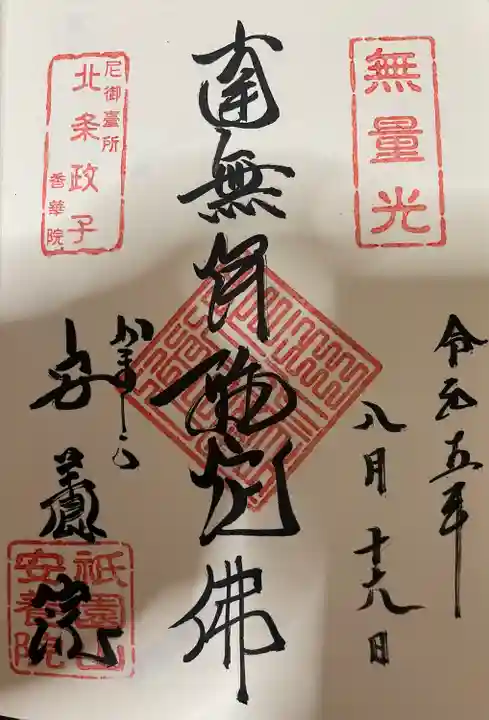 無量光
令和五年
八月十六日
南無阿弥陀佛
尼御臺所
北条政子
香華院
かまくら
安養院
祇園山
安養院